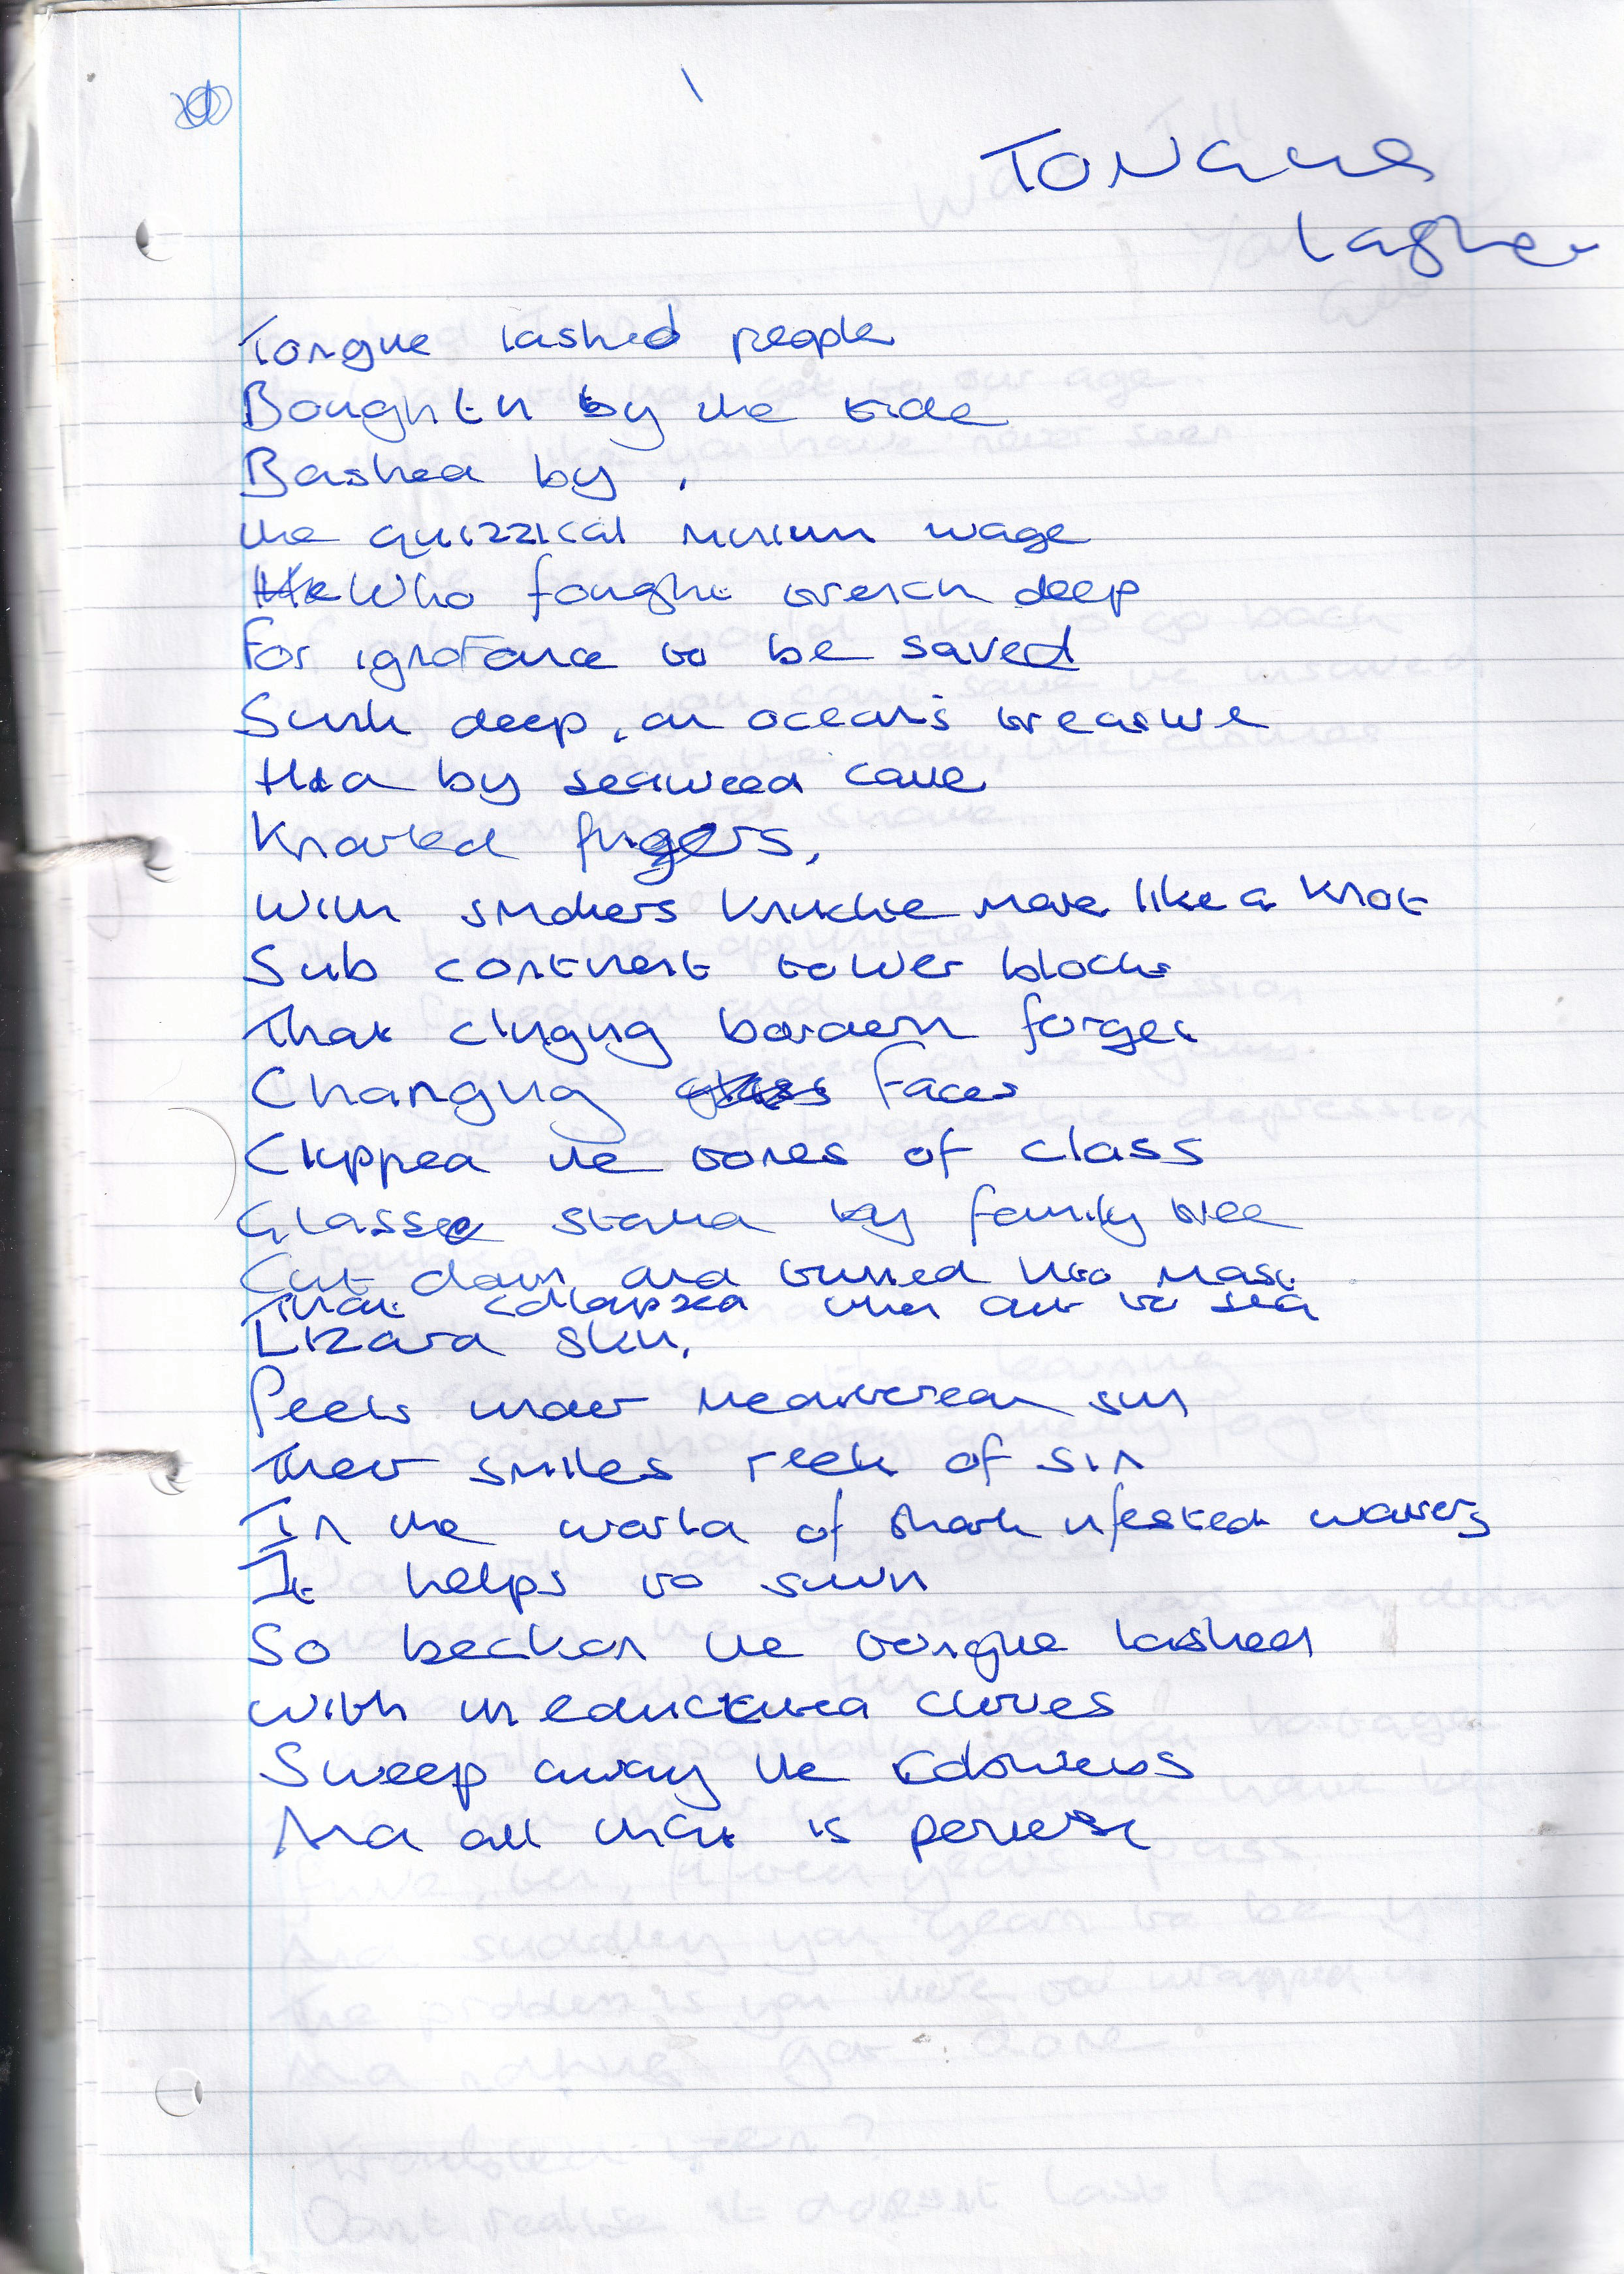 Tongue
lasher
Tongue lashed people
Bought in by the tide
Bashed by,
the quizzical minium wage
Who fought trench deep
For ignorance to be saved
Sunk deep, an ocean's treasure
Hid by seaweed cave
Knarled fingers,
With smokers knuckle more like a knot
Sub continent tower blocks
That clinging boredem forget
Changing faces
Clipped the tones of class
Glasse stand by family tree
Cut down and turned into mast
That collapsed when out to sea
Lizard skin,
Peels under Mediterean sun
Their smiles reek of sin
In the world of shark infested waters
It helps to swim
So beckon the tongue lashed
With uneducated
Sweep away the
And all that is perverse